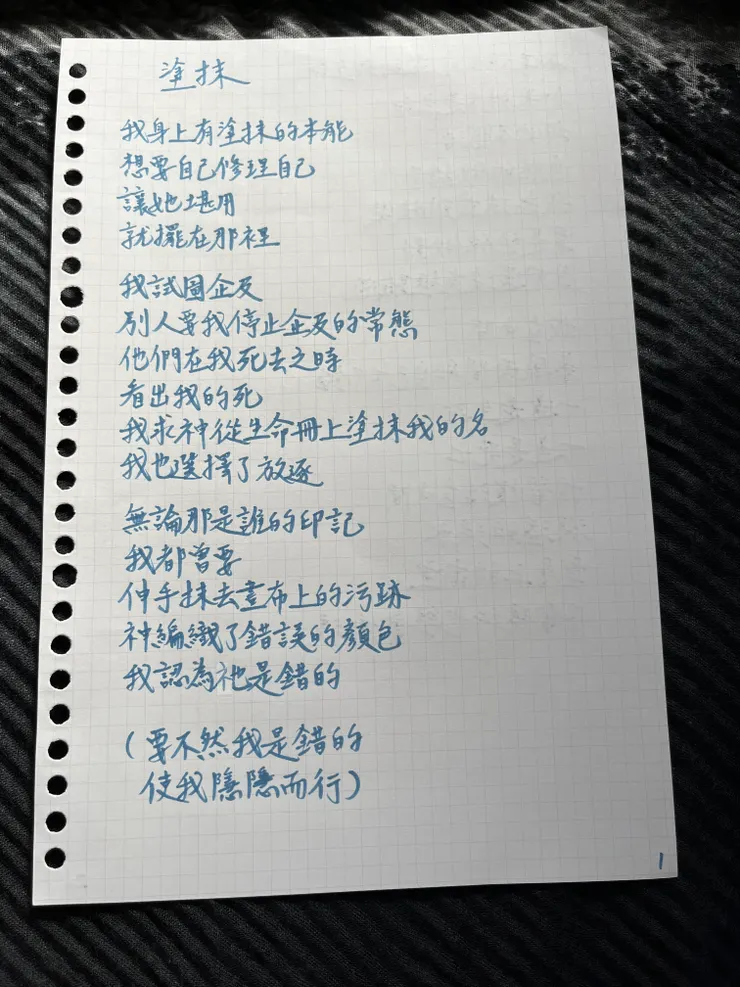 塗抹
我身上有塗抹的本能
想要自己修理自己
讓她堪用
就擺在那裡
我試圖企及
別人要我停止企及的常態
他們在我死去之時
看出我的死
我求神從生命冊上塗抹我的名
我也選擇了放逐
無論那是誰的印記
我都曾要
伸手抹去畫布上的污跡
神編織了錯誤的顏色
我認為祂是錯的
(要不然我是錯的
使我隱隱而行)
1